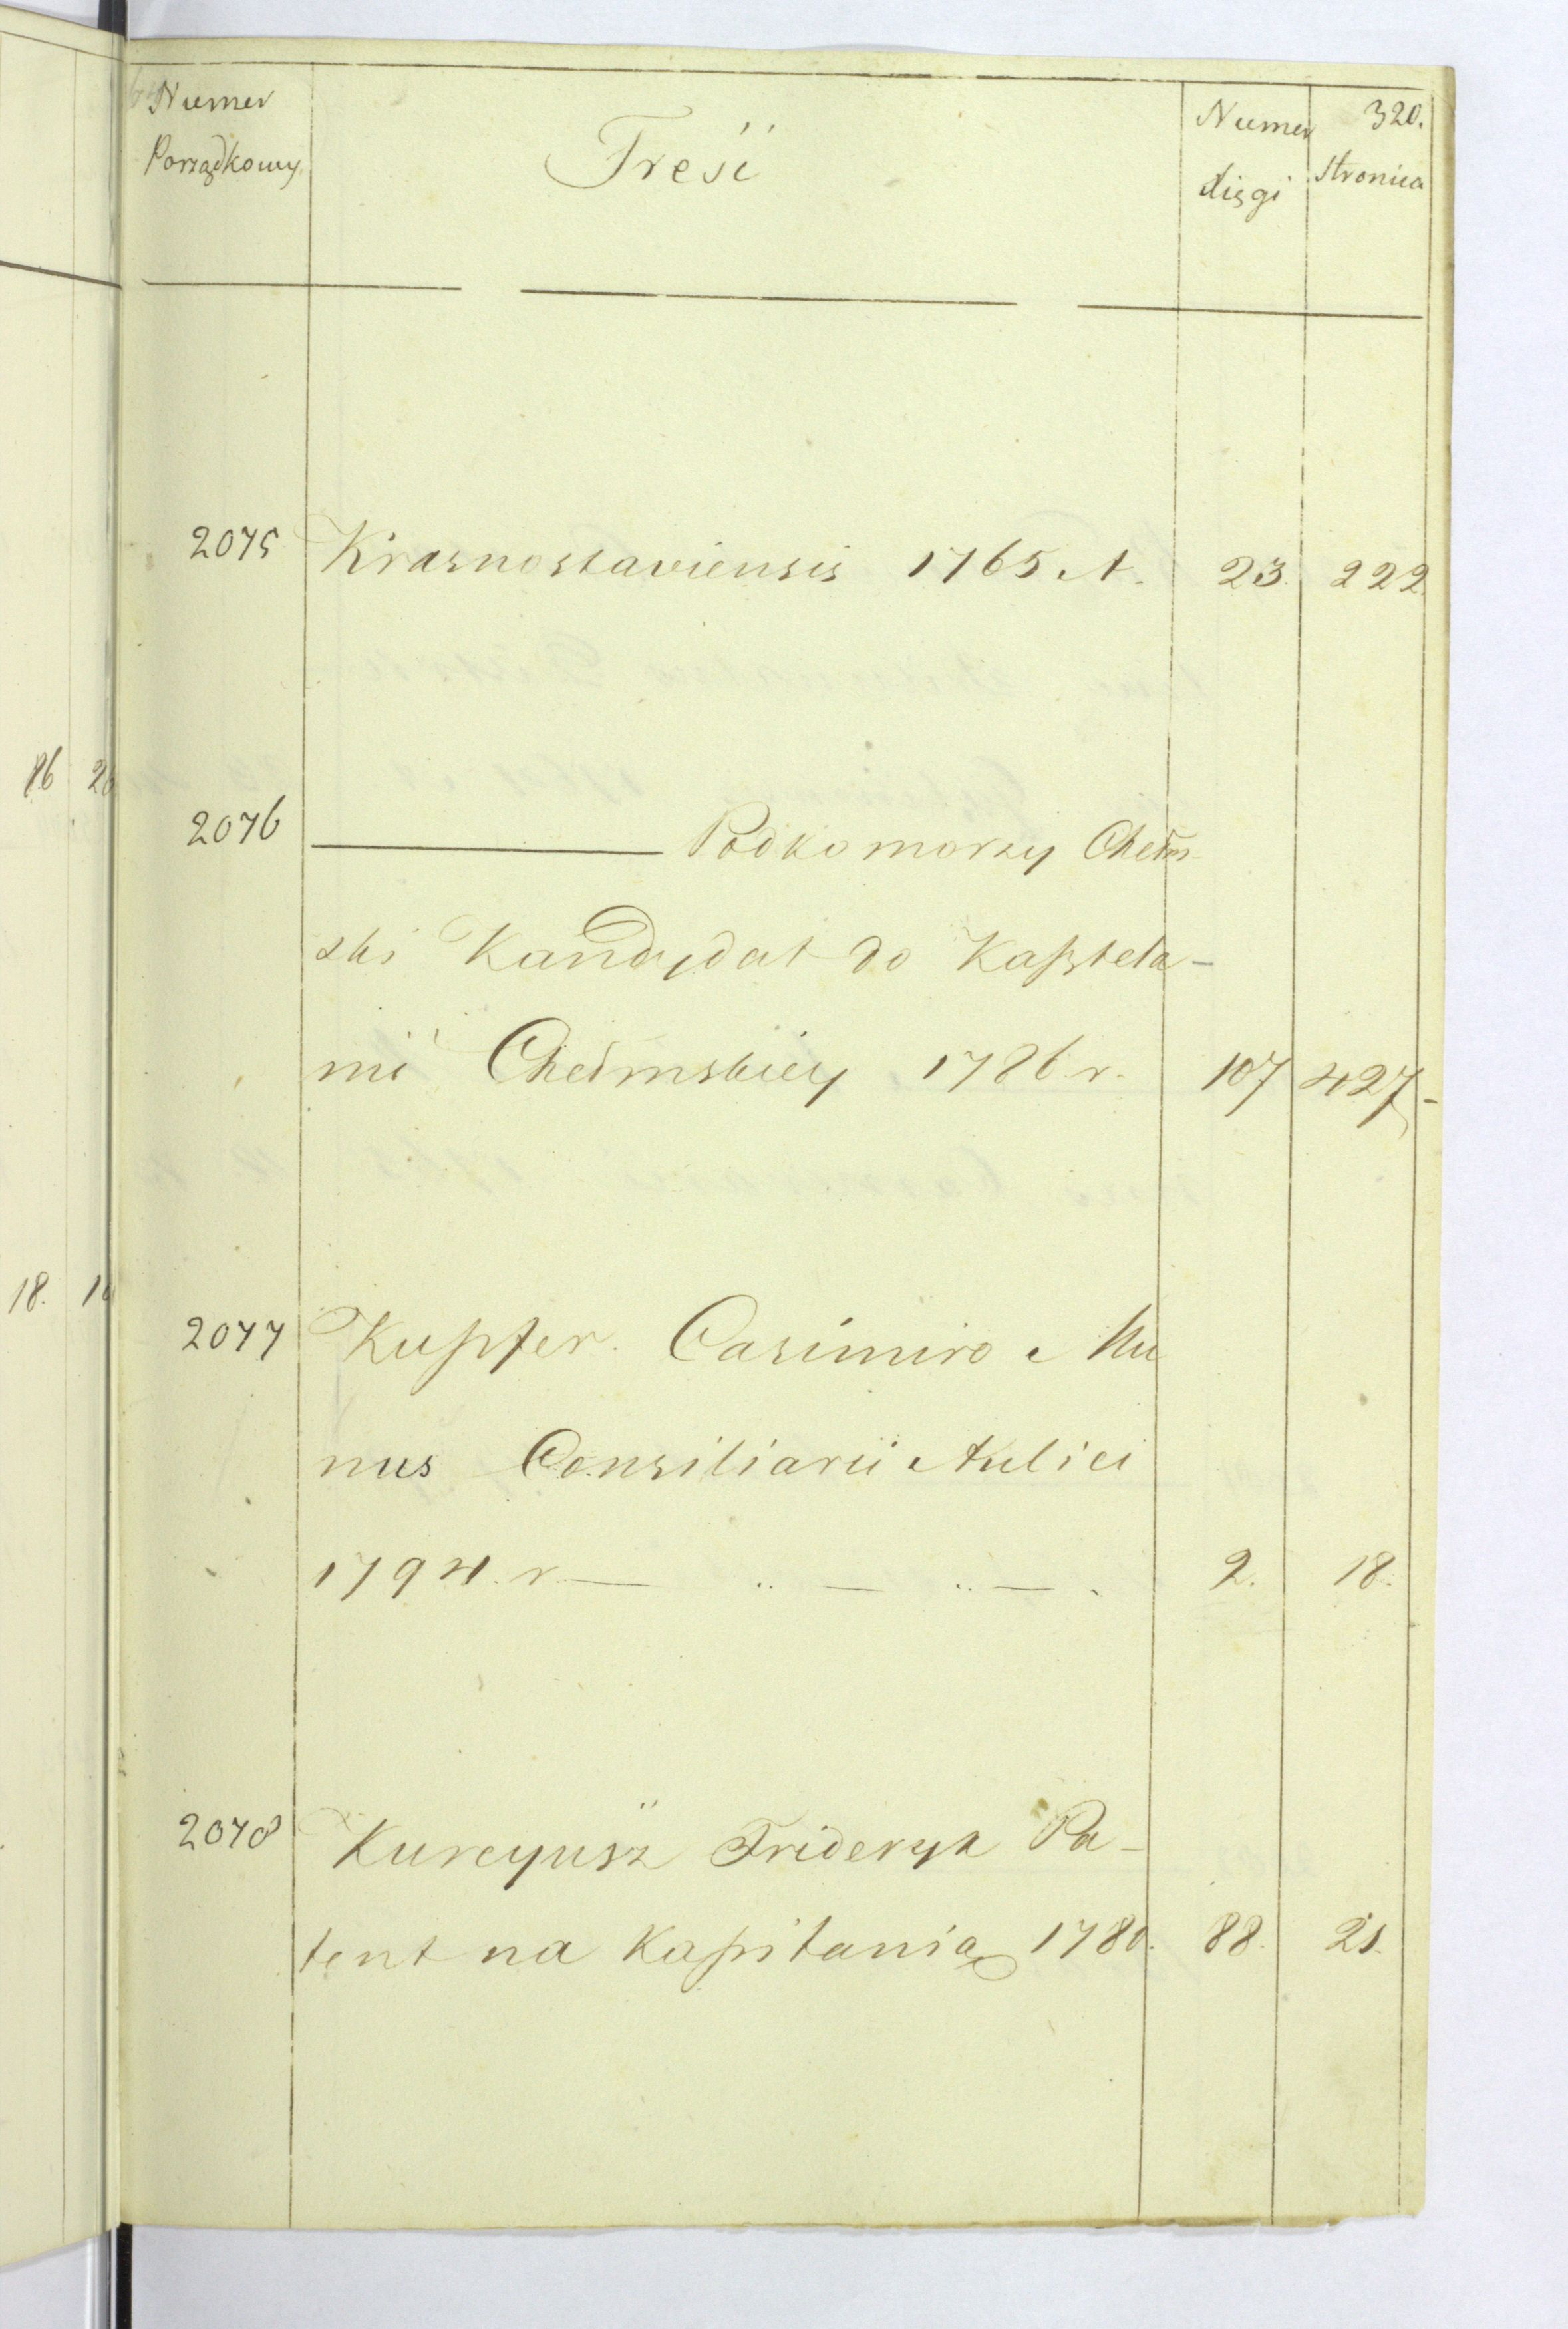 320.
Numer Porządkowy Treść Numer Xięgi Stronica
2075 Krasnostaviensis 1765. A. 23. 222.
2076 ——— Podkomorzy Chełm-
ski Kandydat do Kasztela-
nii Chełmskiey 1786 r. 107 427-
2077 Kupfer. Casimiro Mu
nus Consiliarii Aulici
1794. r — .. — .. — . 2. 18.
2078 Kurcyusz Frideryk Pa-
tent na Kapitanią 1780. 88. 21.
86 20
18. 10